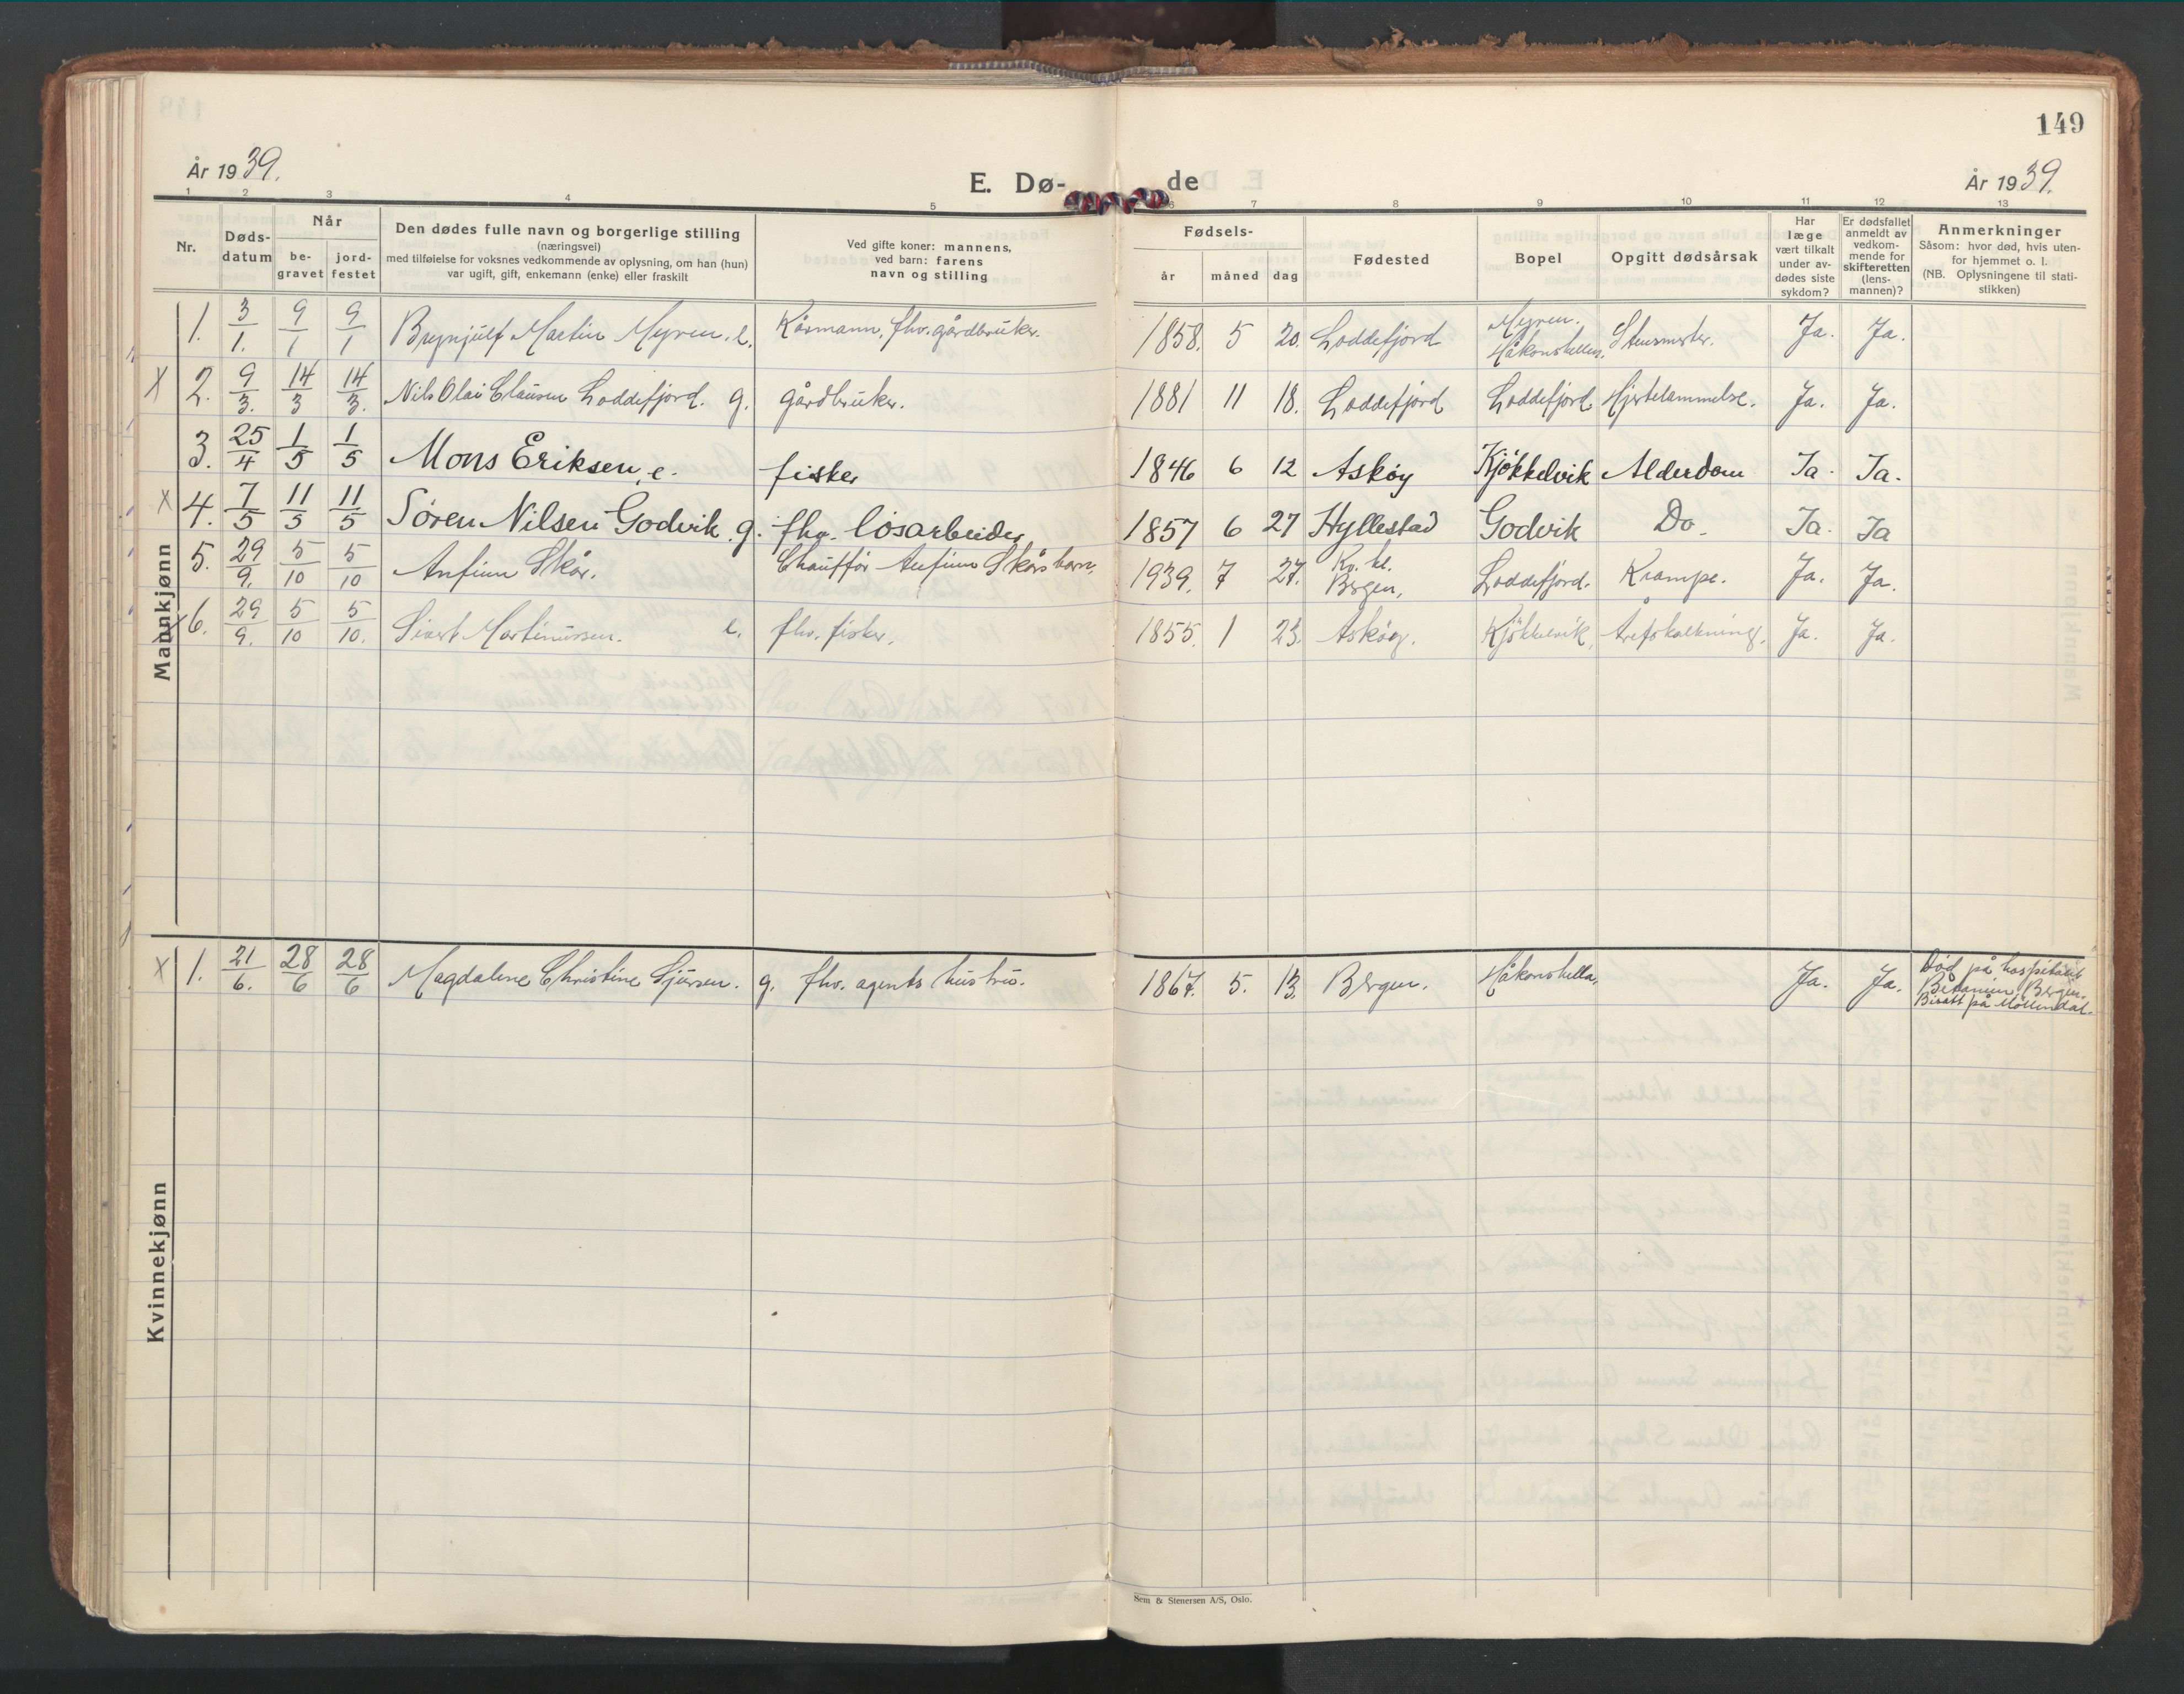 149
År 1939.
E. Dø-
de
År 1939.
1 2 3 4 5 6 7 8 9 10 11 12 13
Nr.
Døds-
datum
Når
be-
gravet
jord-
festet
Den dødes fulle navn og borgerlige stilling
(næringsvei)
med tilføielse for voksnes vedkommende av oplysning, om han (hun)
var ugift, gift, enkemann (enke) eller fraskilt
Ved gifte koner: mannens,
ved barn: farens
navn og stilling
Fødsels-
år måned dag
Fødested
Bopel
Opgitt dødsårsak
Har
læge
vært tilkalt
under av-
dødes siste
sykdom?
Er dødsfallet
anmeldt av
vedkom-
mende for
skifteretten
(lens-
mannen)?
Anmerkninger
Såsom: hvor død, hvis uten-
for hjemmet o. l.
(NB. Oplysningene til stati-
stikken)
Mannkjønn
1. 3/1. 9/1 9/1 Brynjulf Martin Myren. e. Kårmann, fhv. gårdbruker. 1858. 5 20. Loddefjord Myren. Håkonshellen. Ja. Ja.
X 2. 9/3. 14/3 14/3. Nils Olai Clausen Loddefjord. g. gårdbruker. 1881 11 18. Loddefjord Loddefjord Hjertelammelse. Ja. Ja.
3. 25/4 1/5 1/5 Mons Eriksen, e. fisker 1846 6 12 Askøy Kjøkkelvik Alderdom Ja. Ja.
X 4. 7/5 11/5 11/5 Søren Nilsen Godvik. g. fhv. løsarbeider 1857 6 27 Hyllestad Godvik Do. Ja. Ja
5. 29/9. 5/10 5/10 Anfinn Skår. Chauffør Anfinn Skårs barn. 1939. 7 27. Kv. kl. Bergen, Loddefjord. Krampe. Ja. Ja.
X 6. 29/9. 5/10 5/10. Sivert Martinussen. e. fhv. fisker, 1855. 1 23. Askøy. Kjøkkelvik, Årefokalkning. Ja. Ja.
Kvinnekjønn
X 1. 21/6. 28/6 28/6 Magdalene Christine Sjursen. g. fhv. agents hustru. 1867. 5. 13. Bergen. Håkonshella, Ja. Ja. Død på hospitalet
Betanien, Bergen.
Bisatt på Møllendal.
Sem & Stenersen A/S, Oslo.